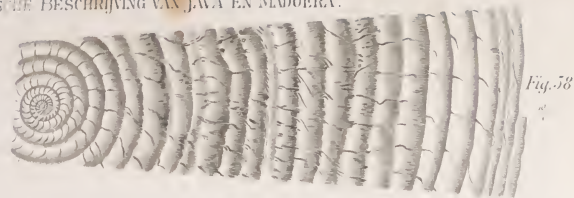 BESCHRIJVING VAN JAVA EN MADOERA.
Fig. 58